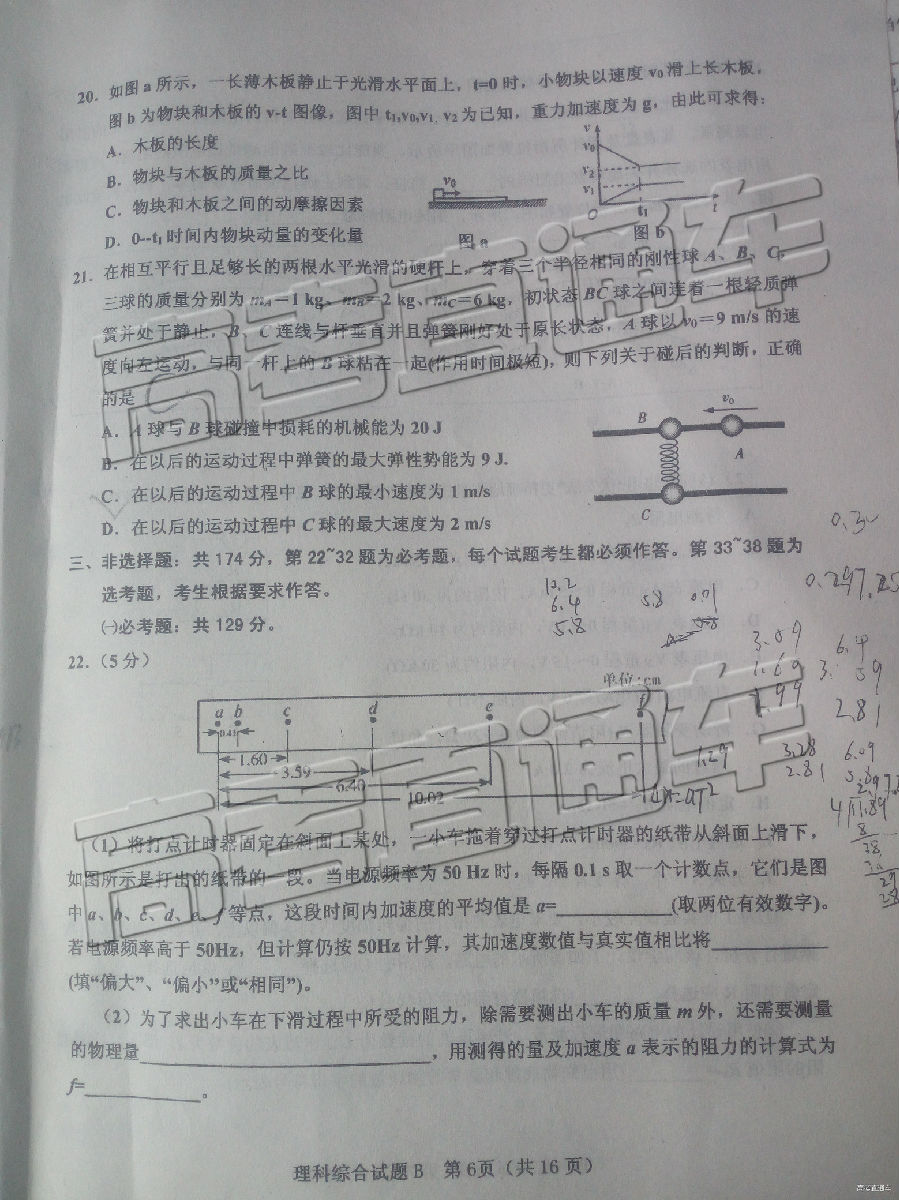 20. 如图 a 所示，一长薄木板静止于光滑水平面上，t=0 时，小物块以速度 v0 滑上长木板，
图 b 为物块和木板的 v-t 图像，图中 t1,v0,v1, v2 为已知，重力加速度为 g，由此可求得：
A．木板的长度
B．物块与木板的质量之比
C．物块和木板之间的动摩擦因素
D．0--t1 时间内物块动量的变化量
v0
图 a
v
v0
v2
v1
O
t1
t
图 b
21. 在相互平行且足够长的两根水平光滑的硬杆上，穿着三个半径相同的刚性球 A、B、C，
三球的质量分别为 mA＝1 kg、mB＝2 kg、mC＝6 kg，初状态 BC 球之间连着一根轻质弹
簧并处于静止，B、C 连线与杆垂直并且弹簧刚好处于原长状态，A 球以 v0＝9 m/s 的速
度向左运动，与同一杆上的 B 球粘在一起(作用时间极短)，则下列关于碰后的判断，正确
的是
A．A 球与 B 球碰撞中损耗的机械能为 20 J
B．在以后的运动过程中弹簧的最大弹性势能为 9 J.
C．在以后的运动过程中 B 球的最小速度为 1 m/s
D．在以后的运动过程中 C 球的最大速度为 2 m/s
B
v0
A
C
三、非选择题：共 174 分，第 22~32 题为必考题，每个试题考生都必须作答。第 33~38 题为
选考题，考生根据要求作答。
㈠必考题：共 129 分。
22.（5 分）
单位:cm
a b c d e f
0.41
1.60
3.59
6.40
10.02
10.2
6.4
5.8
3.09
6.4
2.81
1.29
3.28
2.81
6.09
（1）将打点计时器固定在斜面上某处，一小车拖着穿过打点计时器的纸带从斜面上滑下，
如图所示是打出的纸带的一段。当电源频率为 50 Hz 时，每隔 0.1 s 取一个计数点，它们是图
中 a、b、c、d、e、f 等点，这段时间内加速度的平均值是 a=____________(取两位有效数字)。
若电源频率高于 50Hz，但计算仍按 50Hz 计算，其加速度数值与真实值相比将____________
(填“偏大”、“偏小”或“相同”)。
（2）为了求出小车在下滑过程中所受的阻力，除需要测出小车的质量 m 外，还需要测量
的物理量______________________________，用测得的量及加速度 a 表示的阻力的计算式为
f=____________。
理科综合试题 B 第 6页（共 16 页）
高考直通车
高考直通车